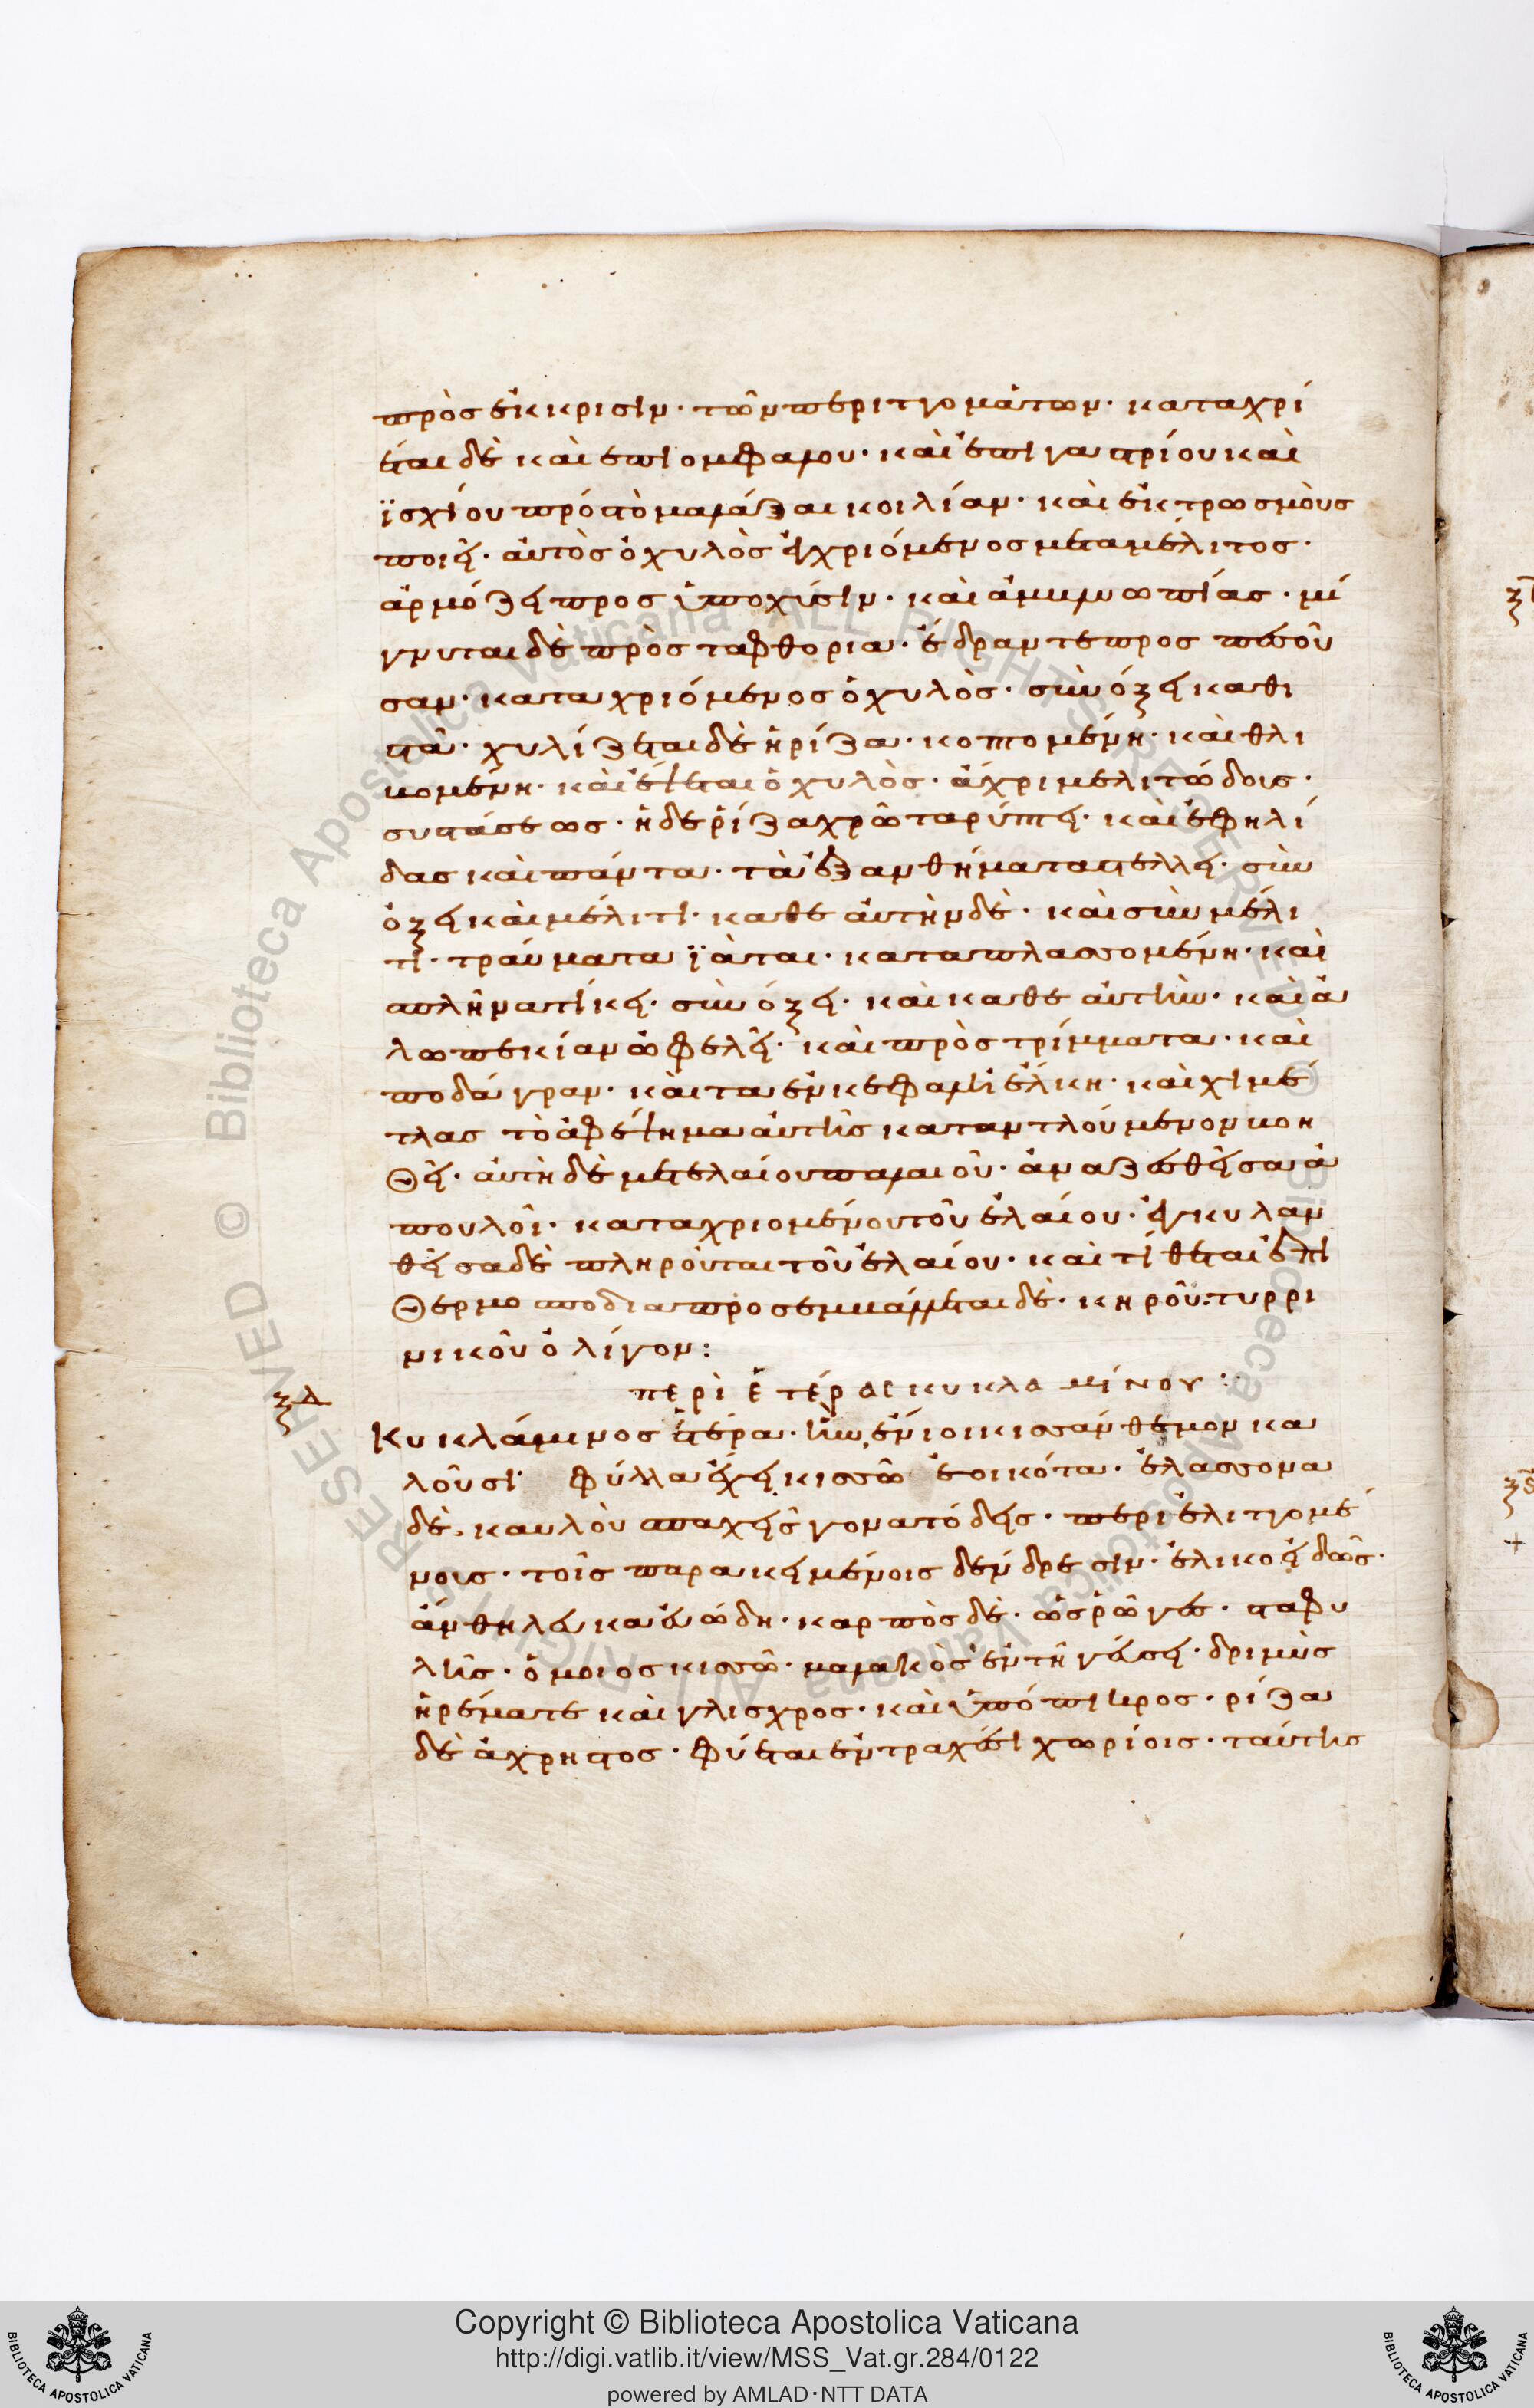 πρὸς ἔκκρισιν· τῶν περιττωμάτων· καταχρί
εται δὲ καὶ ἐπι ομφαλου· καὶ ἐπι γαστρίου καὶ
ϊσχίου πρὸς τὸ μαλάξαι κοιλίαν· καὶ ἐκτρωσμοὺς
ποιεῖ· αὐτὸς ὁ χυλὸς ἐγχριόμενος μετα μέλιτος·
ἁρμόζει προς ὑποχύσιν· καὶ ἀμβλυωπίας· μί
γνυται δὲ πρὸς τα φθορια· ἕδραν τε προς πεσοῦ
σαν· καταχριόμενος ὁ χυλὸς· σὺν όξει καθι
στᾶ· χυλίζεται δὲ ἡ ρίζα· κοπτομένη· καὶ θλι
βομένη· καὶ ἕψεται ὁ χυλὸς· ἄχρι μελιτώδους·
συστάσεως· ἡ δὲ ῥίζα χρῶτα ρύπτει· καὶ ἐφηλί
δας καὶ πάντα· τὰ ἐξανθήματα στέλλει· σὺν
όξει καὶ μέλιτι· καθε αὑτὴν δὲ· καὶ σὺν μέλι
τι· τραύματα ϊᾶται· καταπλασσομένη· καὶ
σπλῆνα τίκει· σὺν όξει· καὶ καθε αὑτὴν· καὶ ἀ
λωπεκίαν ὠφελεῖ· καὶ πρὸς τρίμματα· καὶ
ποδάγραν· καὶ τα ἐν κεφαλῆ ἕλκη· καὶ χιμέ
τλας τὸ ἀφέψημα αὐτῆς καταντλούμενον βοη
Θεῖ· αὐτὴ δὲ μετελαίου παλαιοῦ· ἀναζεσθεῖσα ἀ
πουλοῖ· καταχριομένου τοῦ ἐλαίου· ἐγκυλαν
θεῖσα δὲ πληροῦται τοῦ ἐλαίου· καὶ τίθεται ἐπὶ
Θερμοσποδια προσεμβάλλεται δὲ· κηροῦ τυρρι
νικοῦ ὀλίγον:
περὶ ἑτέρας κυκλαμίνου:
ξδ
Κυκλάμινος ἑτέρα· ἣν ἔνιοι κισσάνθεμον κα
λοῦσι φύλλα ἔχει κισσῶ ἐοικότα· ἐλάσσονα
δὲ· καυλὸυ σπαχεῖς γονατώδεις· περιελιττομέ
νους· τοῖς παρακειμένοις δένδρεσιν· ἑλικοειδῶς·
ἄνθη λευκα εὐώδη· καρπὸς δὲ· ὡς ῥᾶγες· σταφυ
λῆς· ὅμοιος κισσῶ· μαλακὸς ἐν τῆ γεύσει· δριμὺς
ἠρέμα τε καὶ γλισχρος· καὶ ὑπόπικρος· ρίζα
δὲ ἄχρηστος· φύεται ἐν τραχέσι χωρίοις· ταύτης
Copyright © Biblioteca Apostolica Vaticana
http://digi.vatlib.it/view/MSS_Vat.gr.284/0122
powered by AMLAD·NTT DATA